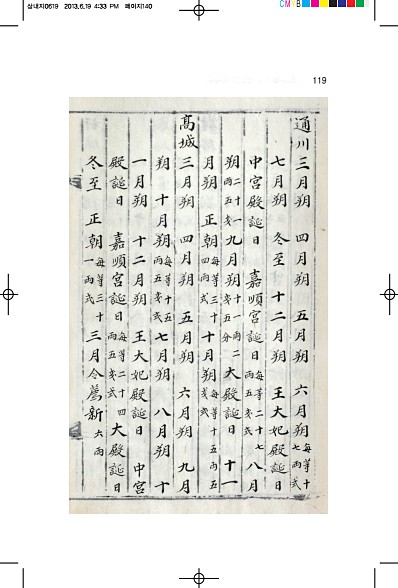 삼내지0619 2013.6.19 4:33 PM 페이지140
CMYB
119
通川三月朔 四月朔 五月朔 六月朔 每等十七兩式
七月朔 冬至 十二月朔 王大妃殿誕日
中宮殿誕日 嘉順宮誕日 每等二十七兩五戔式 八月
朔 二十一兩五戔 九月朔 十一兩二戔五分 大殿誕日 十一
月朔 正朝 每等三十四兩式 十月朔 每等十五兩五戔式
高城三月朔 四月朔 五月朔 六月朔 九月
朔 十月朔 每等十五兩五戔式 七月朔 八月朔 十
一月朔 十二月朔 王大妃殿誕日 中宮
殿誕日 嘉順宮誕日 每等二十四兩五戔式 大殿誕日
冬至 正朝 每等三十一兩式 三月令薦新 六兩